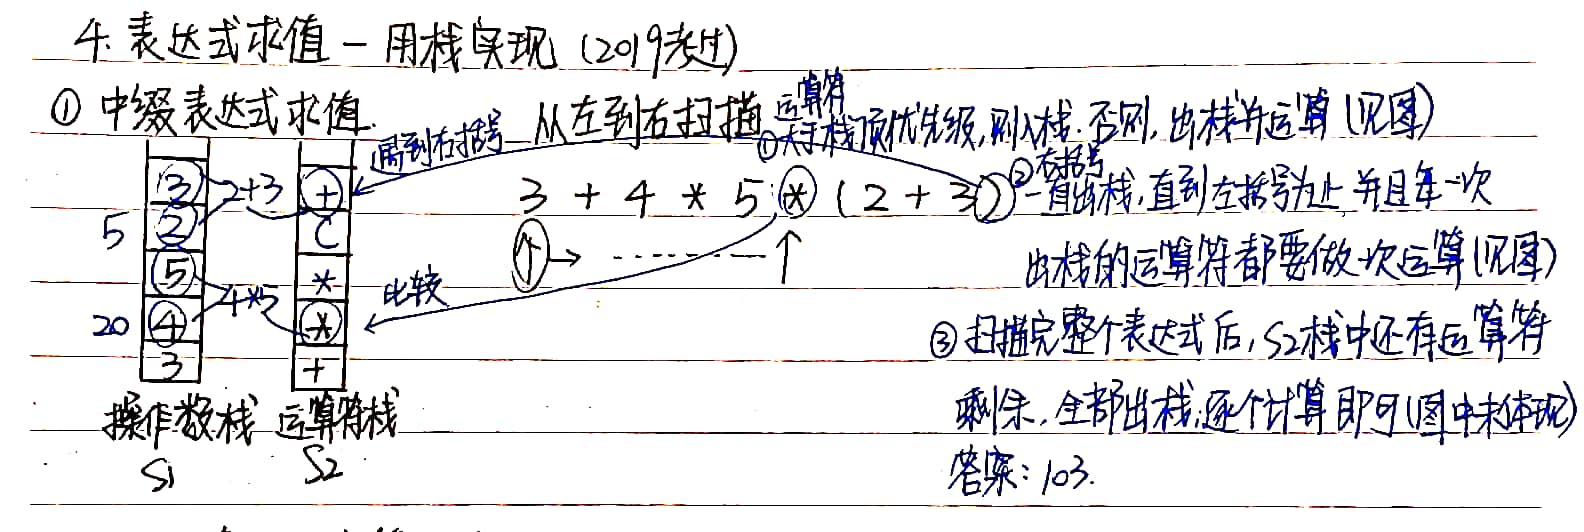 4. 表达式求值 — 用栈实现 (2019考过)
① 中缀表达式求值.
从左到右扫描
运算符
①大于栈顶优先级,则入栈.否则,出栈并运算(见图)
遇到右括号
3 + 4 * 5 * (2 + 3)
②右括号
一直出栈,直到左括号为止 并且每一次
出栈的运算符都要做一次运算(见图)
③扫描完整个表达式后,S2栈中还有运算符
剩余,全部出栈,逐个计算即可(图中未体现)
答案: 103.
比较
3
2
5
4
3
2+3
4*5
5
20
+
(
*
*
+
操作数栈 运算符栈
S1 S2